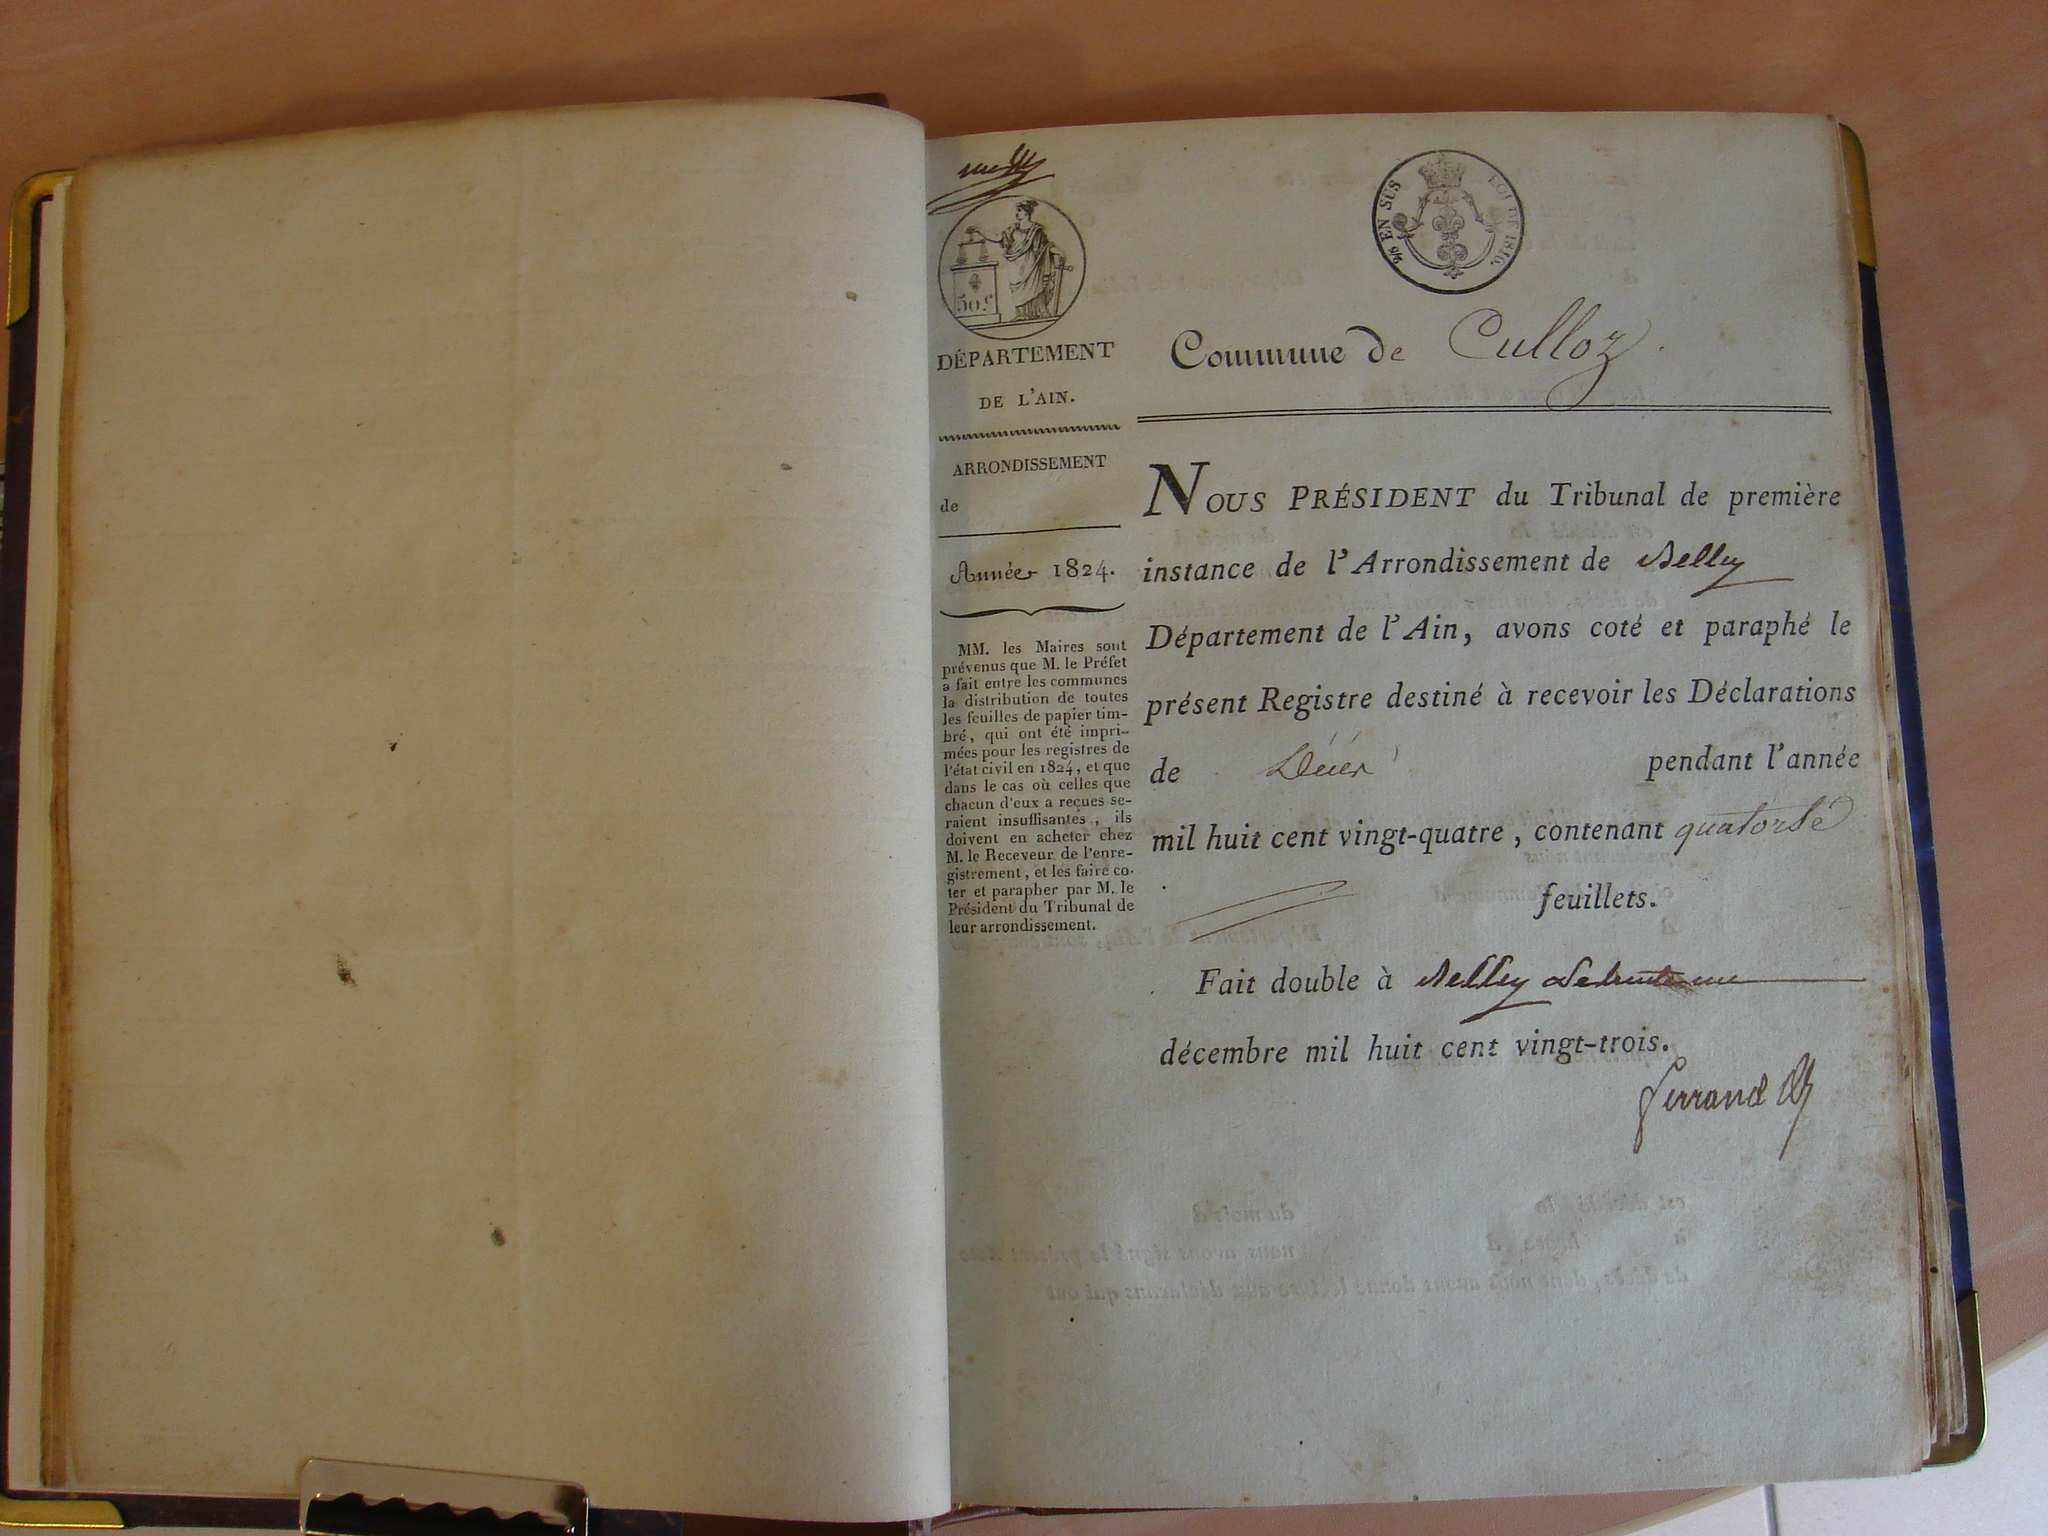 50.c
5/6 EN SUS LOI DE 1816.
DÉPARTEMENT
DE L'AIN.
ARRONDISSEMENT
de
Année 1824.
MM. les Maires sont
prévenus que M. le Préfet
a fait entre les communes
la distribution de toutes
les feuilles de papier tim-
bré, qui ont été impri-
mées pour les registres de
l'état civil en 1824, et que
dans le cas où celles que
chacun d'eux a reçues se-
raient insuffisantes, ils
doivent en acheter chez
M. le Receveur de l'enre-
gistrement, et les faire co-
ter et parapher par M. le
Président du Tribunal de
leur arrondissement.
Commune de Culloz.
NOUS PRÉSIDENT du Tribunal de première
instance de l'Arrondissement de Belley
Département de l'Ain, avons coté et paraphé le
présent Registre destiné à recevoir les Déclarations
de Décès pendant l'année
mil huit cent vingt-quatre, contenant quatorse
feuillets.
Fait double à Belley
décembre mil huit cent vingt-trois.
Ferrand